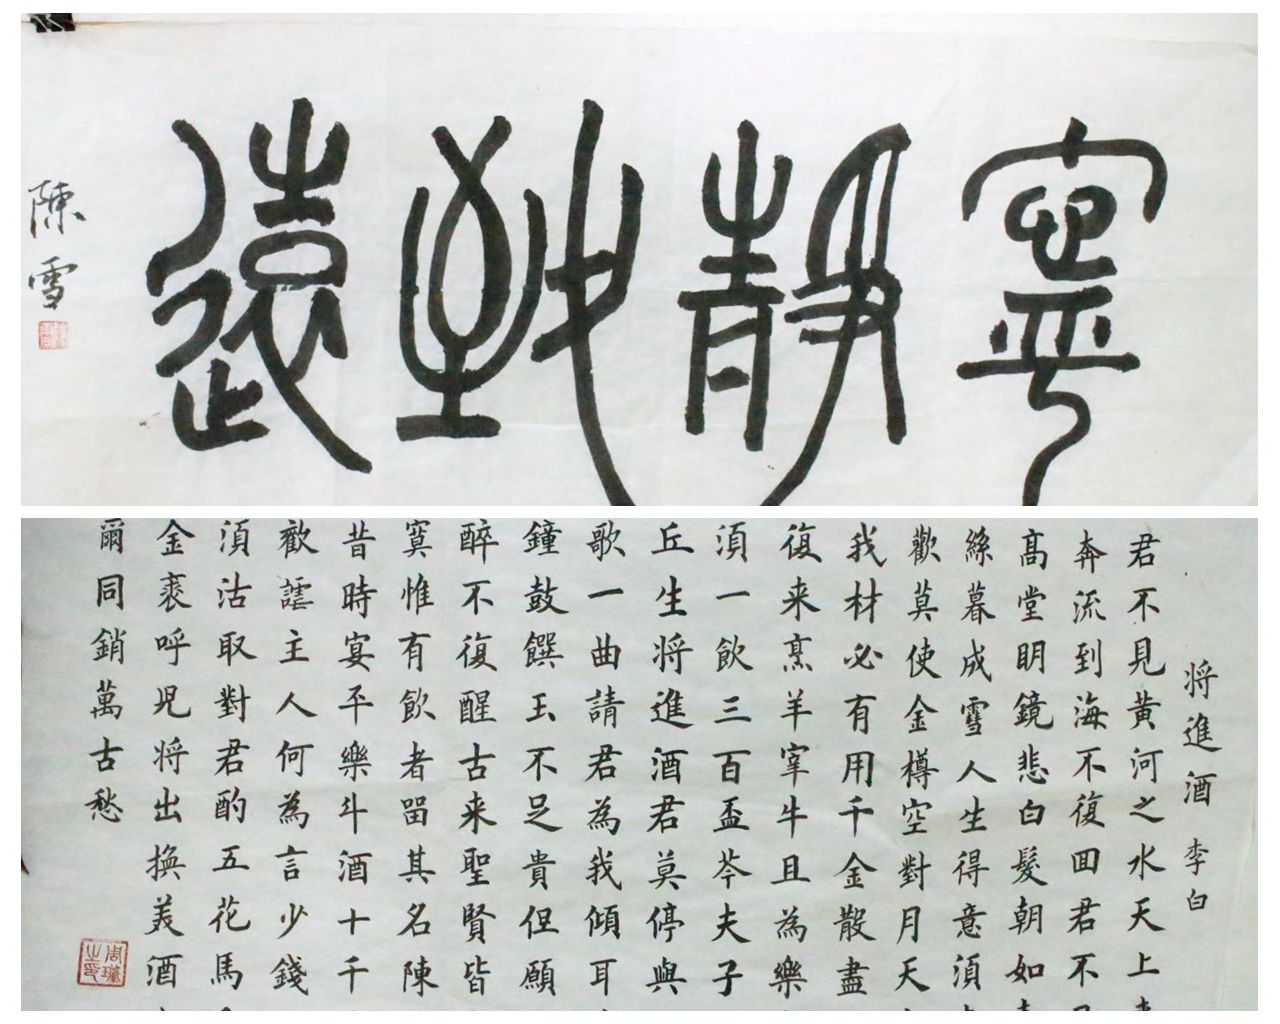 寧靜致遠
陳雪
将進酒 李白
君不見黄河之水天上
奔流到海不復回君不
高堂明鏡悲白髮朝如
絲暮成雪人生得意須
歡莫使金樽空對月天
我材必有用千金散盡
復来烹羊宰牛且為樂
須一飲三百盃岑夫子
丘生将進酒君莫停與
歌一曲請君為我傾耳
鐘鼓饌玉不足貴但願
醉不復醒古来聖賢皆
寞惟有飲者畱其名陳
昔時宴平樂斗酒十千
歡謔主人何為言少錢
須沽取對君酌五花馬
金裘呼児将出換美酒
爾同銷萬古愁